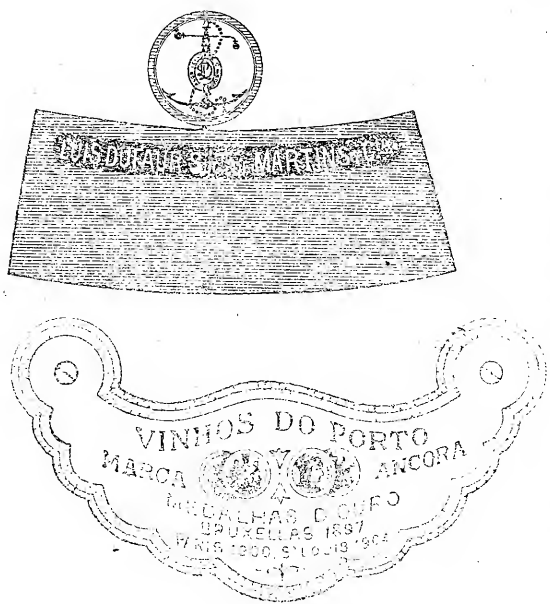 LUIS DUFAUR S. MARTINS
VINHOS DO PORTO
MARCA ANCORA
MEDALHAS D'OURO
BRUXELLAS 1897
PARIS 1900, St LOUIS 1904